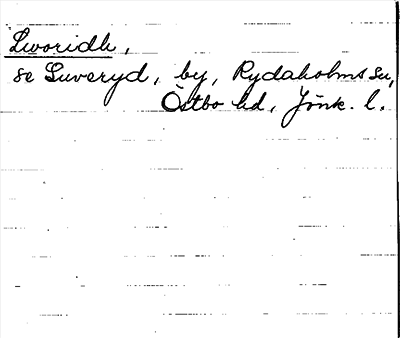 Lworidh,
se Luveryd, by, Rydaholms sn,
Östbo hd, Jönk. l.